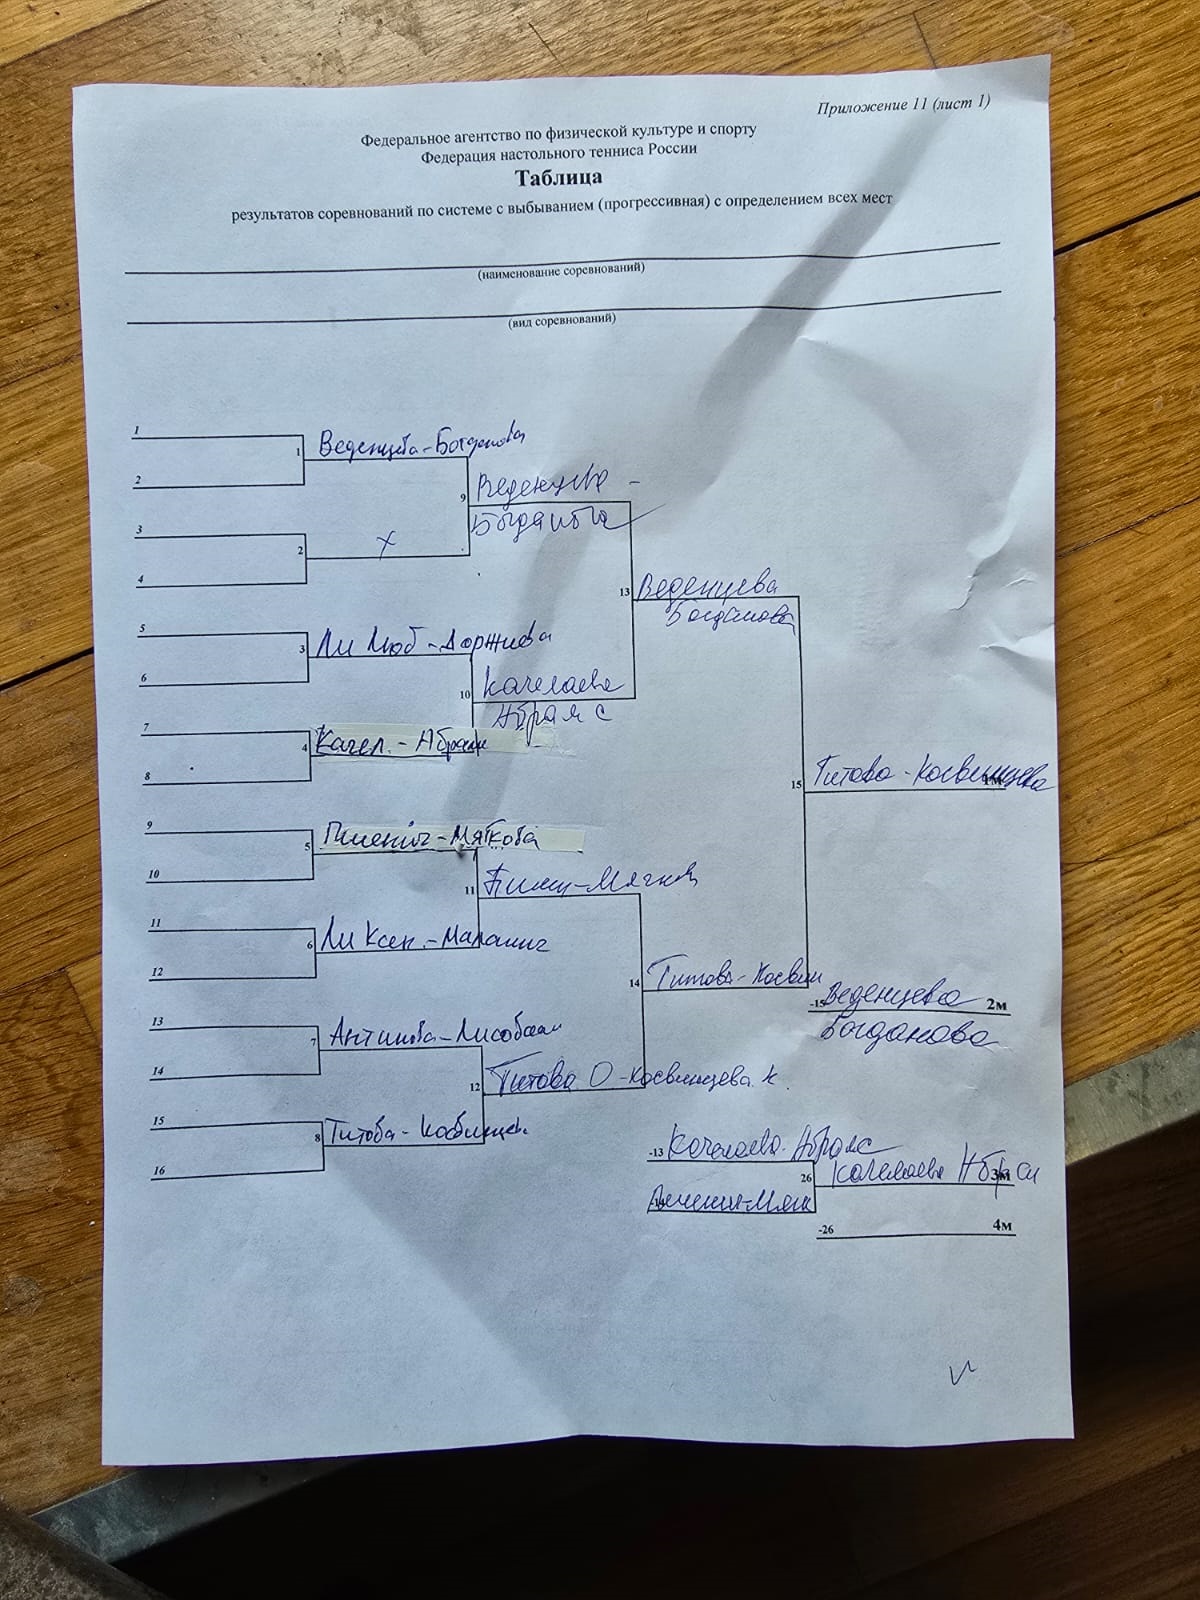 Приложение 11 (лист 1)
Федеральное агентство по физической культуре и спорту
Федерация настольного тенниса России
Таблица
результатов соревнований по системе с выбыванием (прогрессивная) с определением всех мест
(наименование соревнований)
(вид соревнований)
1
1 Веденцева-Богданова
2
9 Веденцева -
Богданова
3
2 х
4
13 Веденцева
Богданова
5
3 Ли Люб-Доржиева
6
10 Качелаева
Абрамс
7
4 Качел.-Абрам
8
15 Титова-Косвинцева 1м
9
5 Пшенич-Мягкова
10
11
11
6 Ли Ксен.-Маланич
12
14 Титова-Косвин
-15 Веденцева 2м
Богданова
13
7 Антипова-
14
12 Титова О-Косвинцева К.
15
8 Титова-Косвинцев
16
-13 Качелаева-Абрамс
26 Качелаева Абрамс 3м
-14
-26 4м